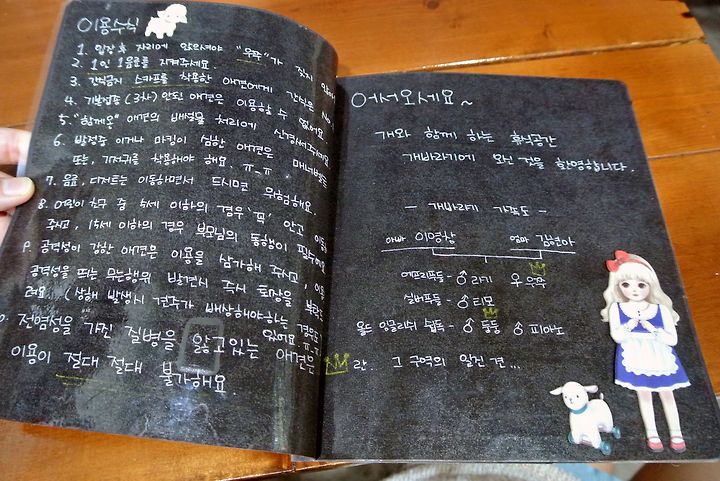 이용수칙
1. 입장 후 자리에 앉으셔야
2. 1인 1음료를 지켜주세요.
3. 간식금지 스카프를 착용한 애견에게 간식은 No
4. 기본접종(3차) 안된 애견은 이용하실 수 없어요.
5. "함께온" 애견의 배설물 처리에 신경써주세요
6. 발정중 이거나 마킹이 심한 애견은 매너벨트
또는, 기저귀를 착용해야 해요. ㅠ_ㅠ
7. 음료, 디저트는 이동하면서 드시면 위험해요.
8. 어린이 친구 중 5세 이하의 경우 '꼭' 안고 이동
주시고, 15세 이하의 경우 부모님의 동행이 필수
9. 공격성이 강한 애견은 이용을 삼가해 주시고, 이용
공격성을 띄는 무는행위 발견시 즉시 퇴장을
려요. (상해 발생시 견주가 배상해야하는 경우도
있어요.ㅠ.ㅠ)
전염성을 가진 질병을 앓고있는 애견은
이용이 절대 절대 불가해요.
어서오세요~
개와 함께 하는 휴식공간
개바라기에 오신 것을 환영합니다.
- 개바라기 가족도 -
아빠 이영창 엄마 김현아
에프리푸들 - ♂ 라키 우 유유
실버푸들 - ♂ 티모
올드 잉글리쉬 쉽독 - ♂ 둥둥 ♂ 피아노
란. 그 구역의 일진 견...